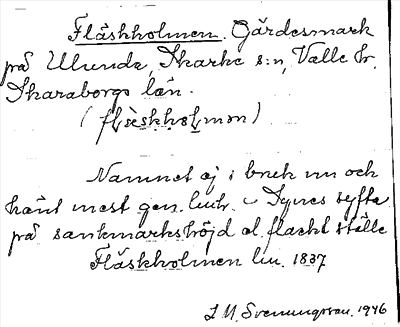 Fläskholmen. Gärdesmark
på Ulunda, Skarke s:n, Valle hr.
Skaraborgs län.
(flæskhoḷmən)
Namnet ej i bruk nu och
känt mest gen. lmhr. – Synes syfta
på sankmarkshöjd el. flackt ställe
Fläskholmen lm. 1837
L. M. Svenungsson. 1946